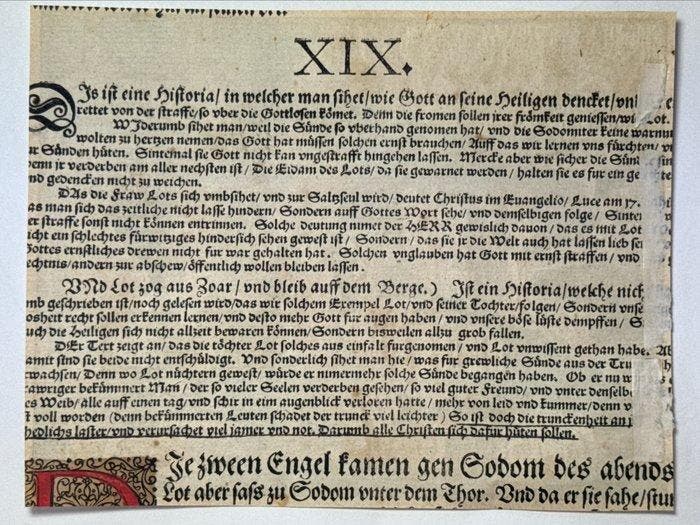 XIX.
DJs ist eine Historia/ in welcher man sihet/wie Gott an seine Heiligen dencket/vn
rettet von der straffe/so vber die Gottlosen kömet. Denn die fromen sollen jrer frömkeit geniessen/wi Lot.
WJderumb sihet man/weil die Sünde so vberhand genomen hat/ vnd die Sodomiter keine warnun
wolten zu hertzen nemen/das Gott hat müssen solchen ernst brauchen/ Auff das wir lernen vns fürchten/
ur Sünden hüten. Sintemal sie Gott nicht kan vngestrafft hingehen lassen. Mercke aber wie sicher die Sün
enn jr verderben am aller nechsten ist/ Die Eidam des Lots/ da sie gewarnet werden/ halten sie es fur ein ge
nd gedencken nicht zu weichen.
DAs die Fraw Lots sich vmbsihet/ vnd zur Saltzseul wird/ deutet Christus im Euangelio/ Luce am 17.
as man sich das zeitliche nicht lasse hindern/ Sondern auff Gottes Wort sehe/ vnd demselbigen folge/ Sinte
er straffe sonst nicht können entrinnen. Solche deutung nimet der HERR gewislich dauon/ das es mit Lot
icht ein schlechtes fürwitziges hindersich sehen gewest ist/ Sondern/ das sie jr die Welt auch hat lassen lieb se
Gottes ernstliches drewen nicht fur war gehalten hat. Solchen vnglauben hat Gott mit ernst straffen/ vnd
echtnis/andern zur abschew/öffentlich wollen bleiben lassen.
VNd Lot zog aus Zoar/ vnd bleib auff dem Berge.) Ist ein Historia/welche nich
mb geschrieben ist/noch gelesen wird/das wir solchem Exempel Lot/vnd seiner Tochter/folgen/ Sondern vnse
osheit recht sollen erkennen lernen/vnd desto mehr Gott fur augen haben/ vnd vnsere böse lüste dempffen/ S
uch die Heiligen sich nicht allzeit bewaren können/Sondern bisweilen allzu grob fallen.
DEr Text zeigt an/ das die töchter Lot solches aus einfalt furgenomen/ vnd Lot vnwissent gethan habe. Ab
amit sind sie beide nicht entschüldigt. Vnd sonderlich sihet man hie/ was fur grewliche Sünde aus der Tru
wachsen/ Denn wo Lot nüchtern gewest/ würde er nimermehr solche Sünde begangen haben. Ob er nu w
rawriger bekümmert Man/ der so vieler Seelen verderben gesehen/ so viel guter Freund/ vnd vnter denselb
es Weib/ alle auff einen tag/ vnd schir in eim augenblick verloren hatte/ mehr von leid vnd kummer/ denn v
t voll worden (denn bekümmerten Leuten schadet der trunck viel leichter) So ist doch die trunckenheit an j
hedlichs laster/vnd verursachet viel jamer vnd not. Darumb alle Christen sich dafur hüten sollen.
DJe zween Engel kamen gen Sodom des abends
Lot aber sass zu Sodom vnter dem Thor. Vnd da er sie sahe/stun